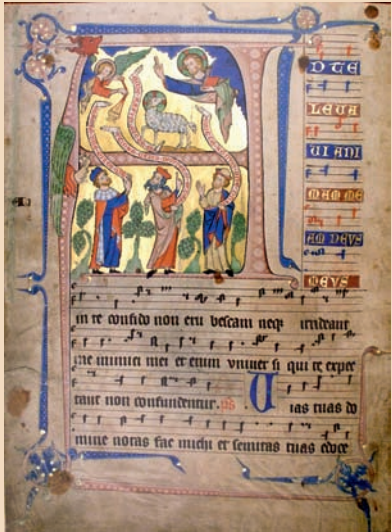 D TE
LEVA
VI ANI
MAM ME
AM DEVS
MEVS
in te confido non eru bescam neqꝫ irrideant
me inimici mei et enim vniuer si qui te expec
tant non confundentur. ps Uias tuas do
mine notas fac michi et semitas tuas edoce